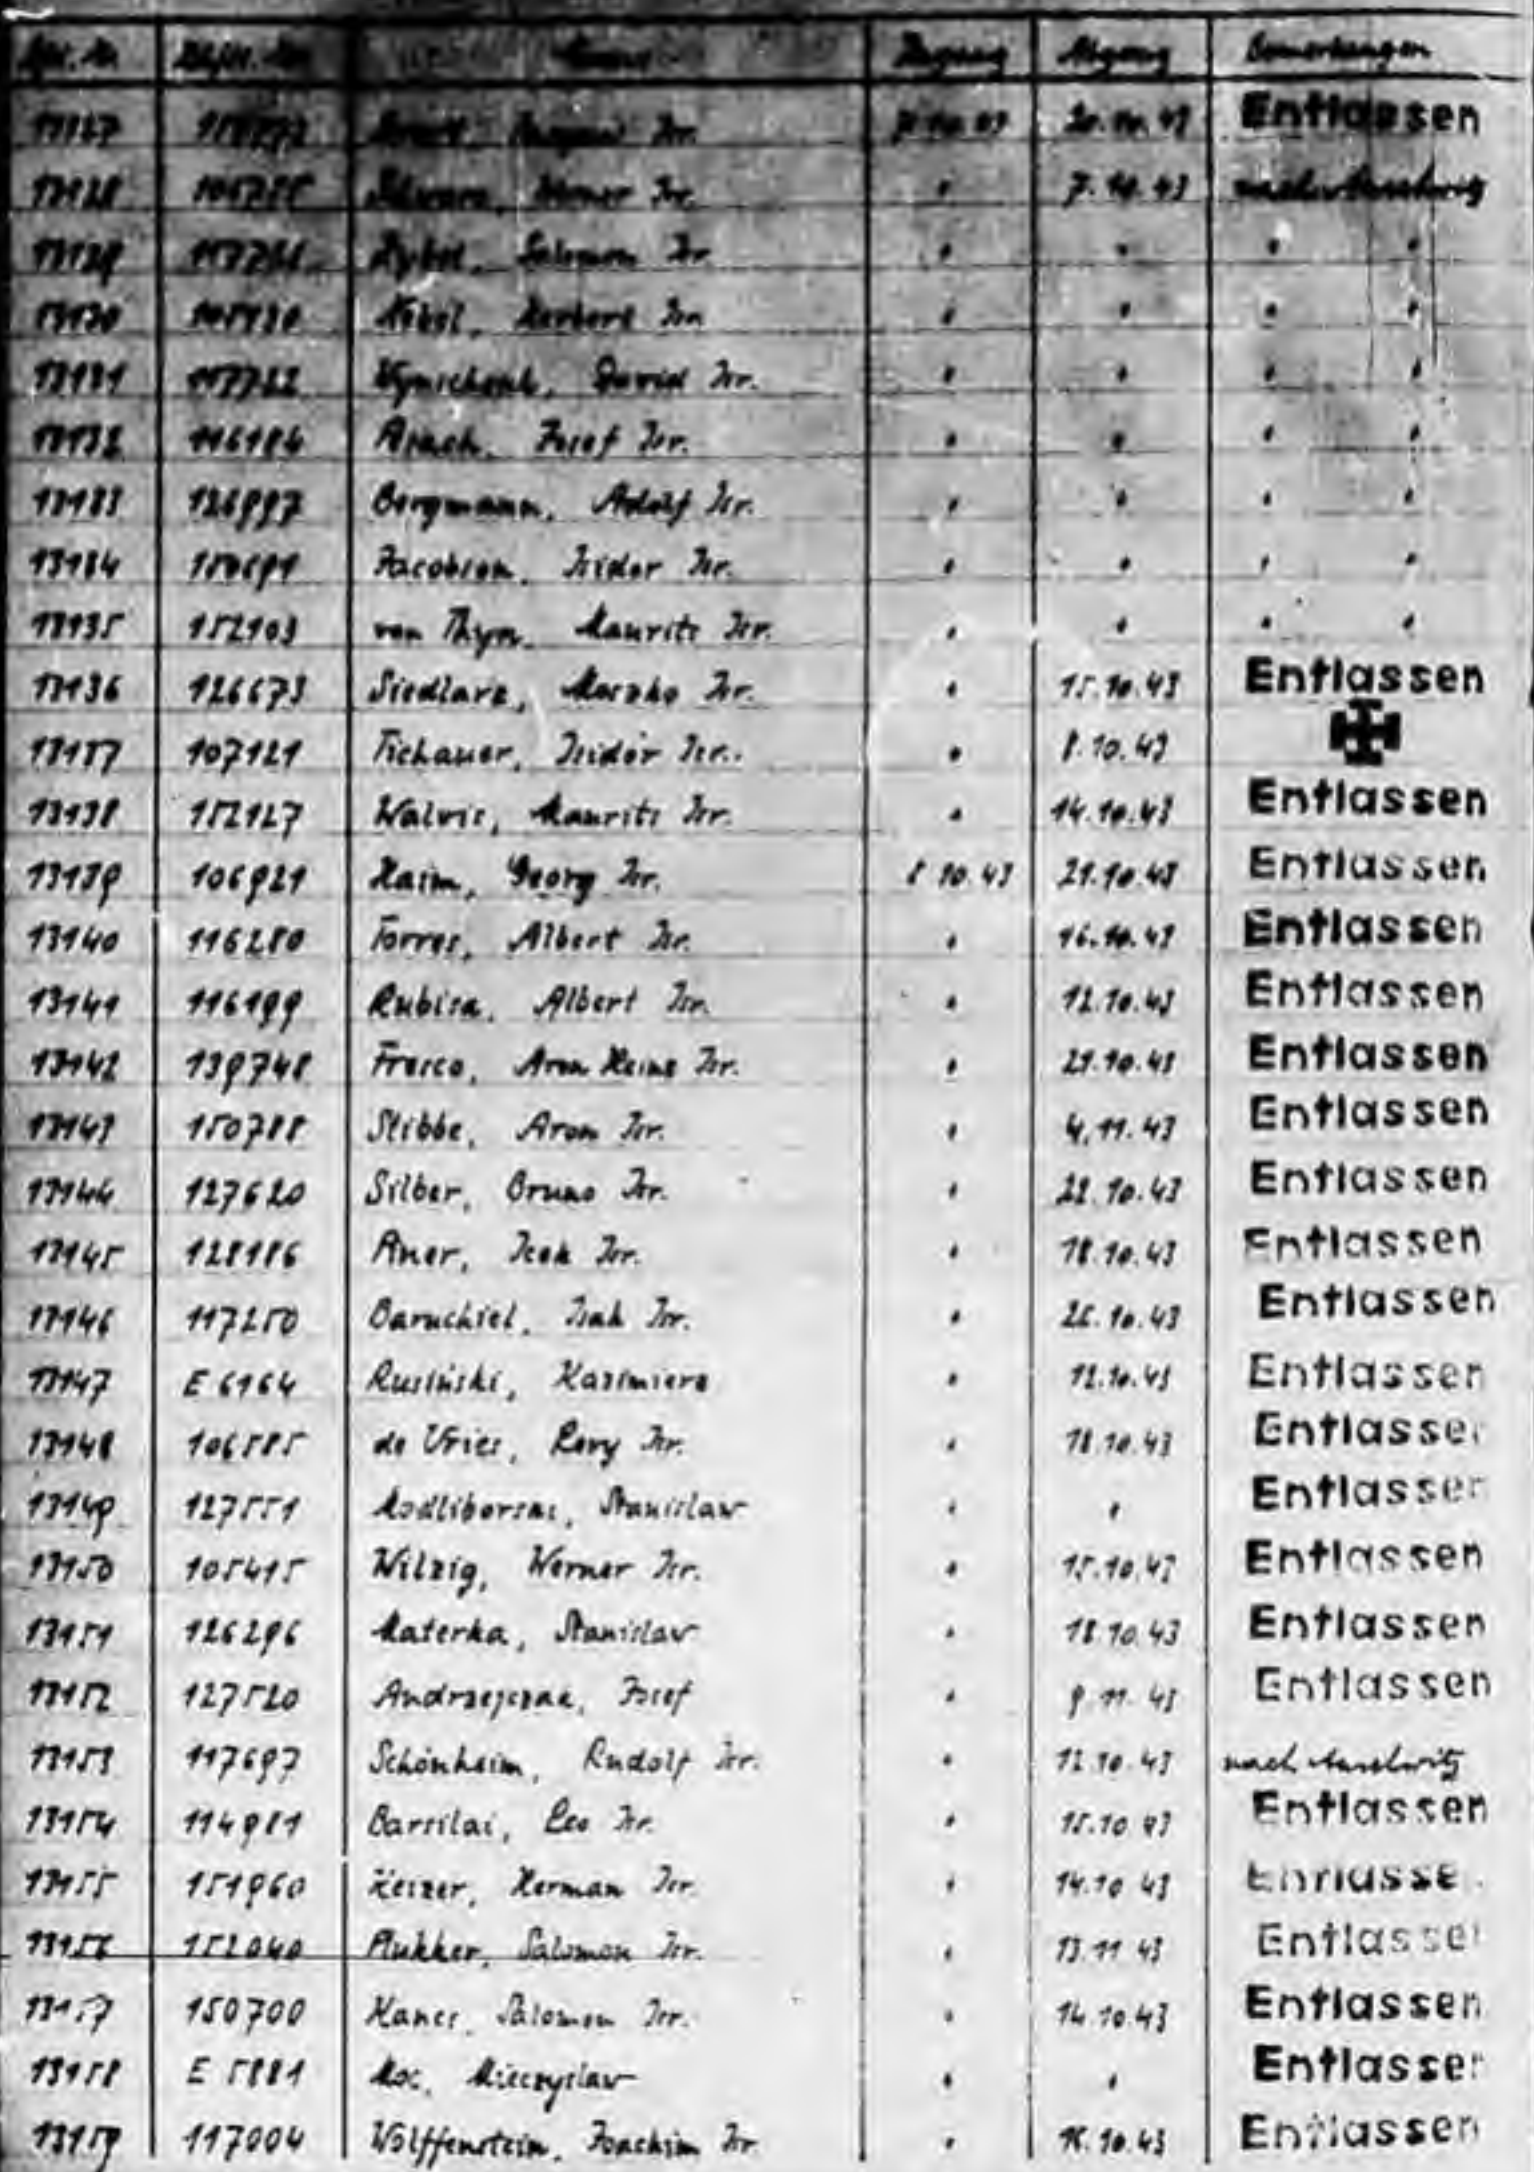 Lfd. Nr. Häftl. Nr. Name Zugang Abgang Bemerkungen
13127 Isr. 7.10.43 20.10.43 Entlassen
13128 Werner Isr. " 7.10.43 nach Auschwitz
13129 Salomon Isr. " " " "
13130 Herbert Isr. " " " "
13131 117722 David Isr. " " " "
13132 116184 Josef Isr. " " " "
13133 126997 Bergmann, Adolf Isr. " " " "
13134 150691 Jacobson, Isidor Isr. " " " "
13135 152103 van Thyn, Maurits Isr. " " " "
13136 126673 Siedlarz, Isr. " 15.10.43 Entlassen
13137 107121 Tichauer, Isidor Isr. " 8.10.43
13138 152127 Walvis, Maurits Isr. " 14.10.43 Entlassen
13139 106921 Haim, Georg Isr. 8.10.43 21.10.43 Entlassen
13140 116280 Torres, Albert Isr. " 16.10.43 Entlassen
13141 116199 Rubisa, Albert Isr. " 12.10.43 Entlassen
13142 139748 Fresco, Aron Heinz Isr. " 21.10.43 Entlassen
13143 150788 Stibbe, Aron Isr. " 4.11.43 Entlassen
13144 127620 Silber, Bruno Isr. " 22.10.43 Entlassen
13145 128186 Isr. " 18.10.43 Entlassen
13146 117250 Baruchiel, Isak Isr. " 26.10.43 Entlassen
13147 E 6164 Rusiński, Kazimierz " 12.10.43 Entlassen
13148 106585 de Vries, Levy Isr. " 18.10.43 Entlassen
13149 127551 Modliborski, Stanislaw " " Entlassen
13150 105415 Wilzig, Werner Isr. " 15.10.43 Entlassen
13151 126296 Materka, Stanislaw " 18.10.43 Entlassen
13152 127520 Andrzejczak, Josef " 9.11.43 Entlassen
13153 117697 Schönheim, Rudolf Isr. " 12.10.43 nach Auschwitz
13154 114981 Barsilai, Leo Isr. " 15.10.43 Entlassen
13155 151960 Keizer, Herman Isr. " 14.10.43 Entlassen
13156 152040 Plukker, Salomon Isr. " 13.11.43 Entlassen
13157 150700 Salomon Isr. " 14.10.43 Entlassen
13158 E 5881 Moc, Mieczyslaw " " Entlassen
13159 117004 Wolffenstein, Joachim Isr. " 10.43 Entlassen